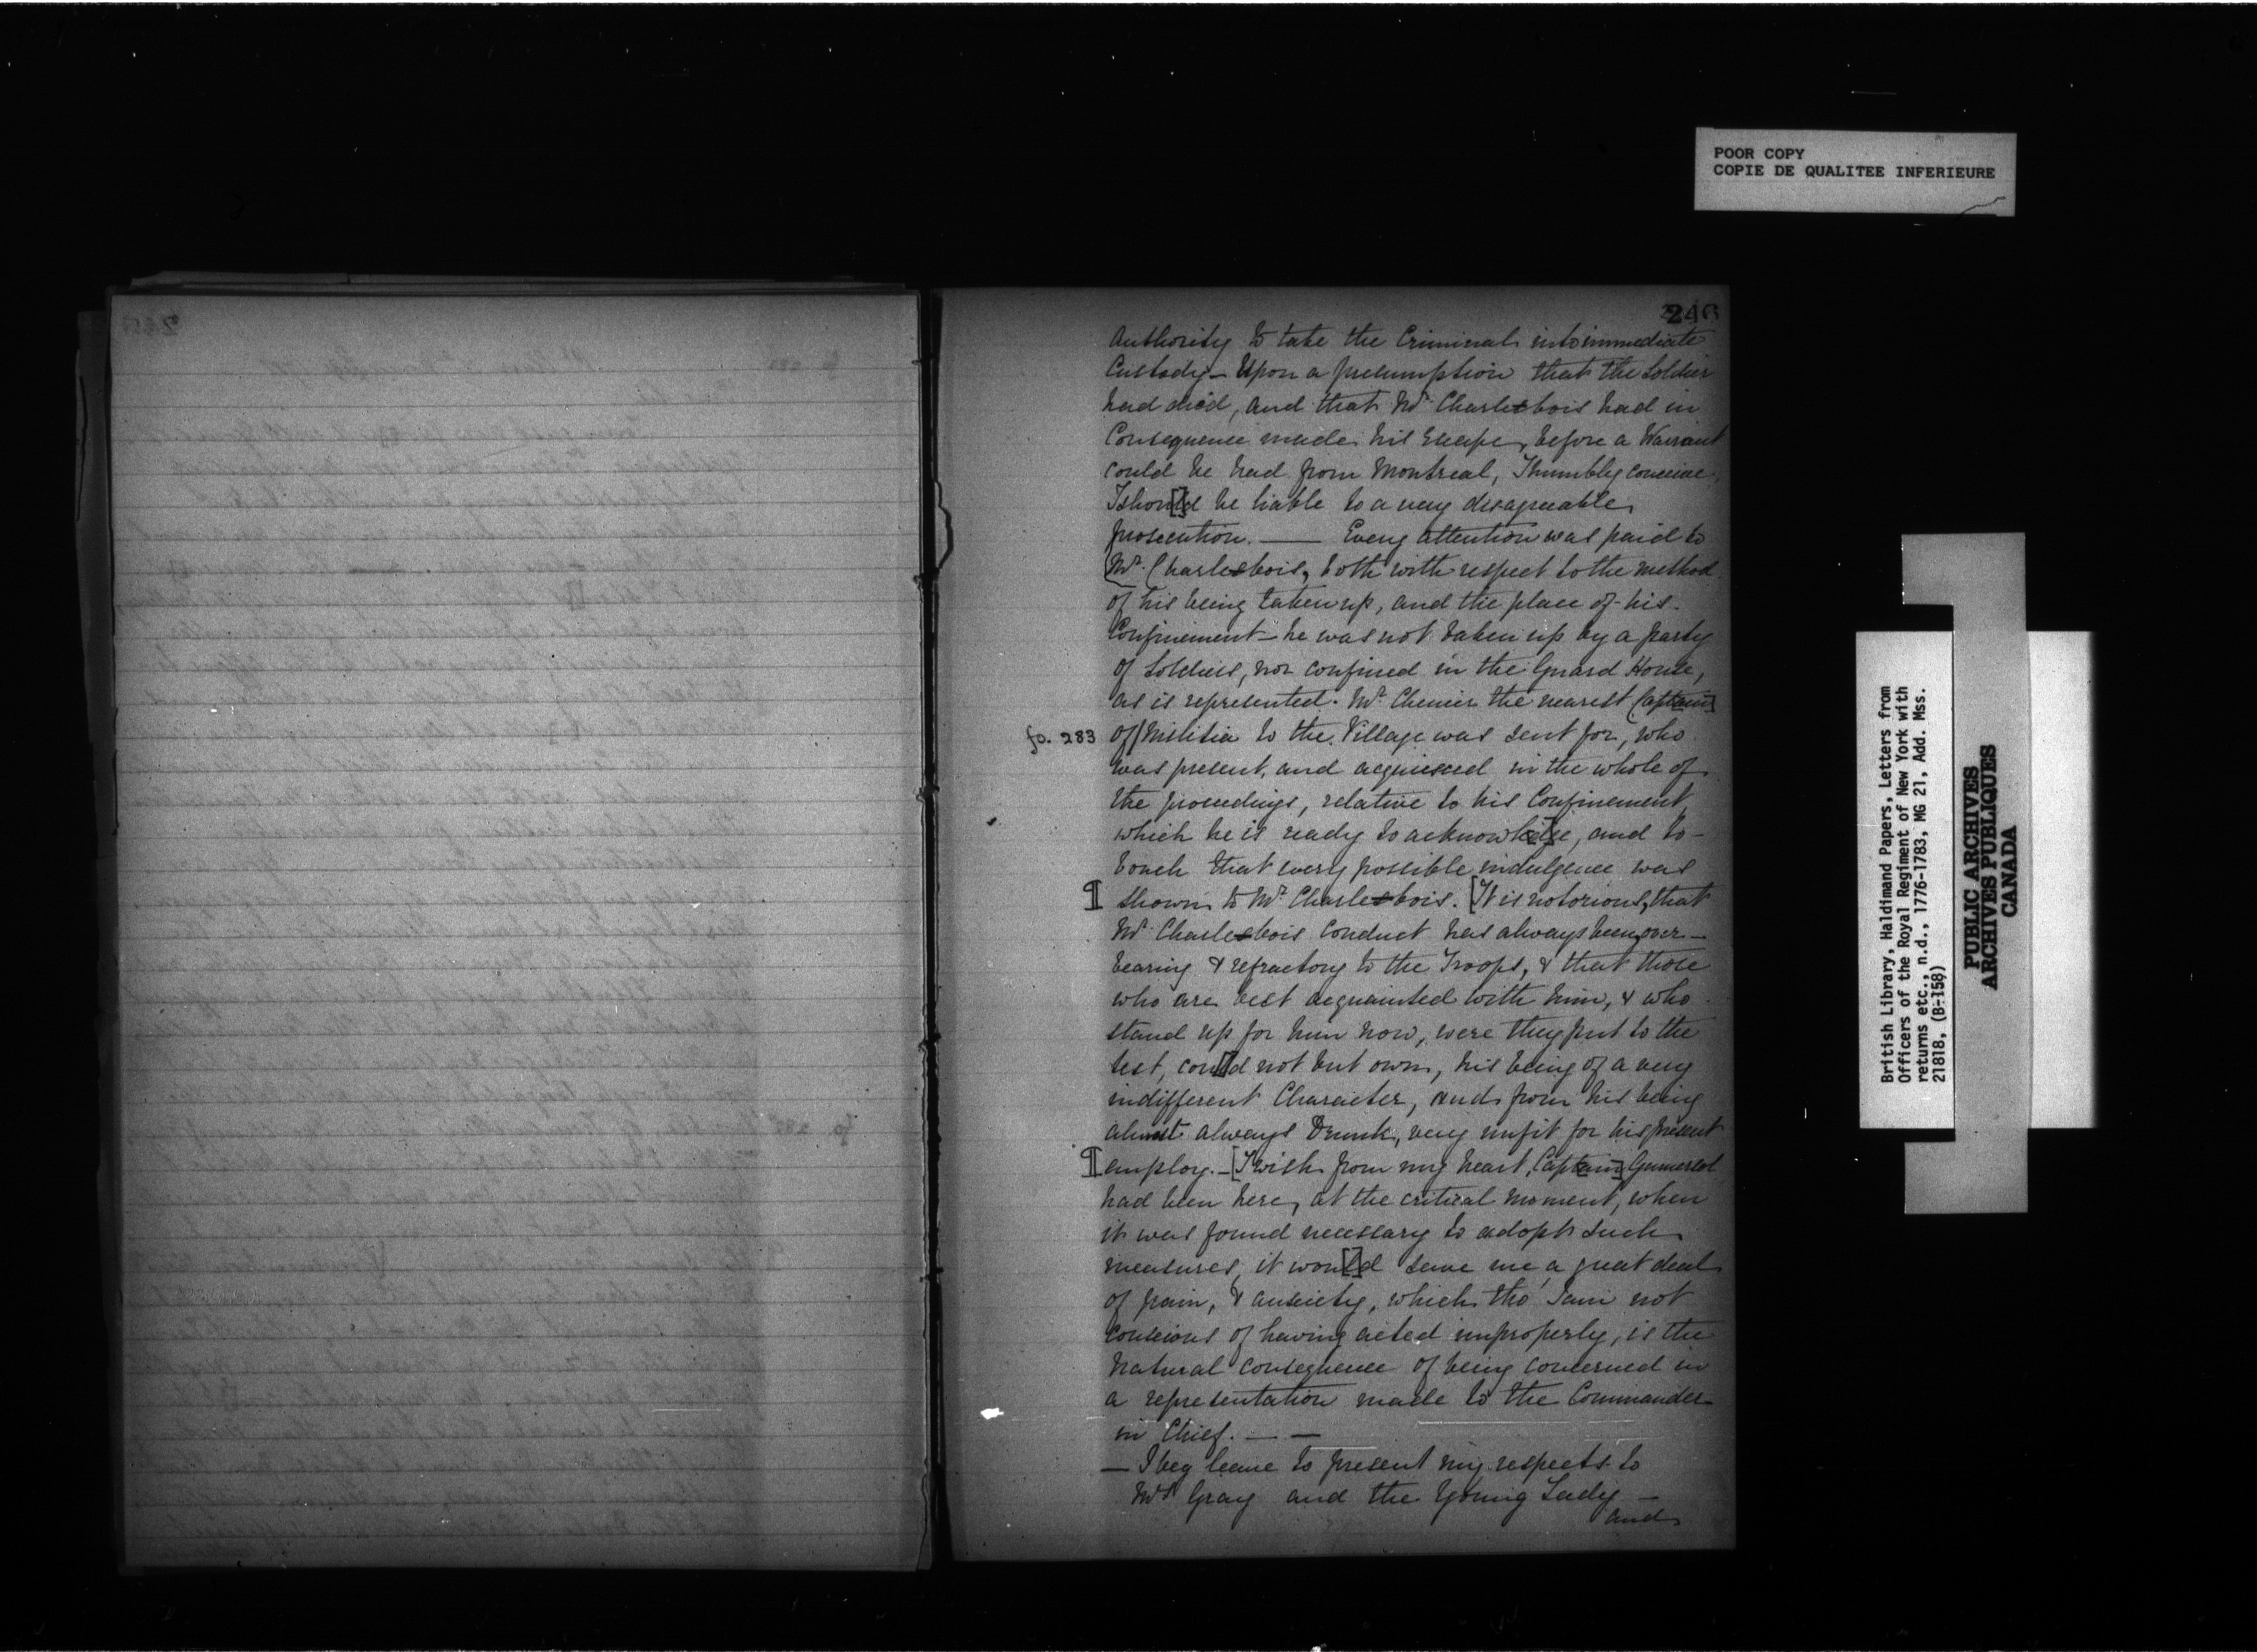 POOR COPY
COPIE DE QUALITEE INFERIEURE
246
Authority to take the Criminal into immediate
Custody – Upon a presumption that the Soldier
had died, and that Mr. Charlebois had in
Consequence made his Escape, before a Warrant
could be had from Montreal, I humbly conceive
I shou[l]d be liable to a very disagreeable
prosecution. — Every attention was paid to
Mr. Charlebois, both with respect to the method
of his being taken up, and the place of his
Confinement – he was not taken up by a party
of Soldiers, nor confined in the Guard House,
as is represented. Mr. Chenier the nearest Capt[ain]
fo. 283 of/Militia to the Village was sent for, who
was present, and acquiesced in the whole of
the proceedings, relative to his Confinement,
which he is ready to acknowle[d]ge, and to
vouch that every possible indulgence was
¶ shown to Mr. Charlebois. [It is notorious, that
Mr. Charlebois Conduct has always been over–
bearing & refractory to the Troops, & that those
who are best acquainted with him, & who
stand up for him now, were they put to the
test, cou[l]d not but own, his being of a very
indifferent Character, and from his being
almost always Drunk, very unfit for his present
¶ employ. – [I wish from my heart, Capt[ain] Gummersol
had been here, at the critical moment, when
it was found necessary to adopt such
measures, it wou[l]d save me a great deal
of pain, & anxiety, which tho' I am not
conscious of having acted improperly, is the
natural consequence of being concerned in
a representation made to the Commander
in Chief. — —
— I beg leave to present my respects to
Mrs Gray and the Young Lady –
and
British Library, Haldimand Papers, Letters from
Officers of the Royal Regiment of New York with
returns etc., n.d., 1776-1783, MG 21, Add. Mss.
21818, (B-158)
PUBLIC ARCHIVES
ARCHIVES PUBLIQUES
CANADA